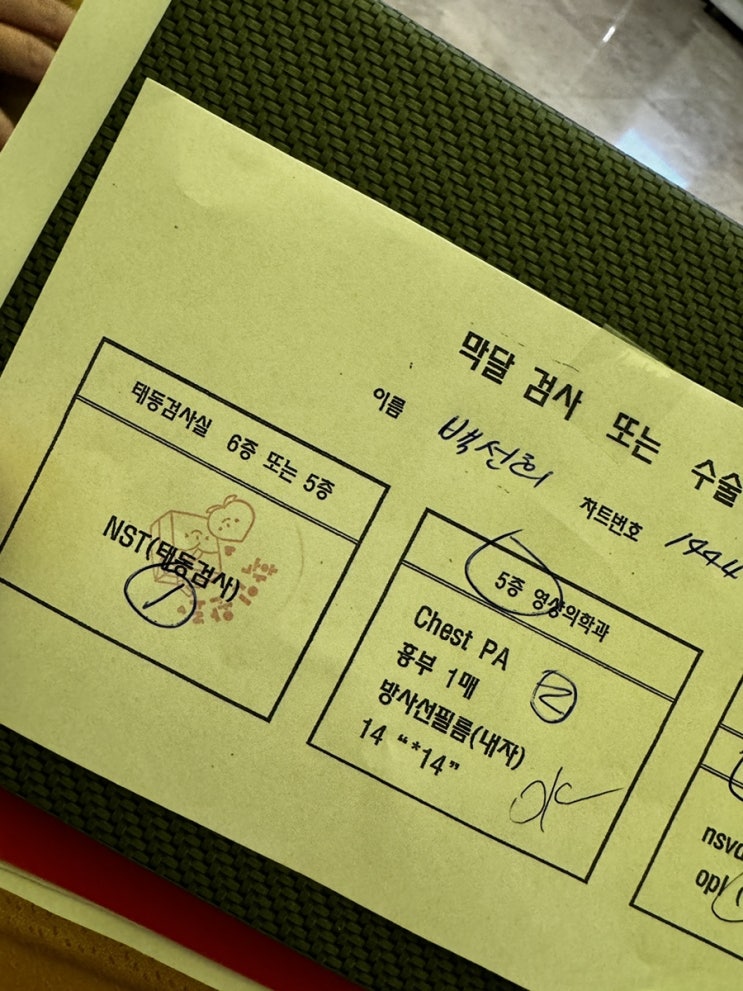 막달 검사 또는 수술
이름 백선희 차트번호 1444
태동검사실 6층 또는 5층
NST(태동검사)
5층 영상의학과
Chest PA
흉부 1매 ②
방사선필름(내자)
14 “*14”
nsvd
op